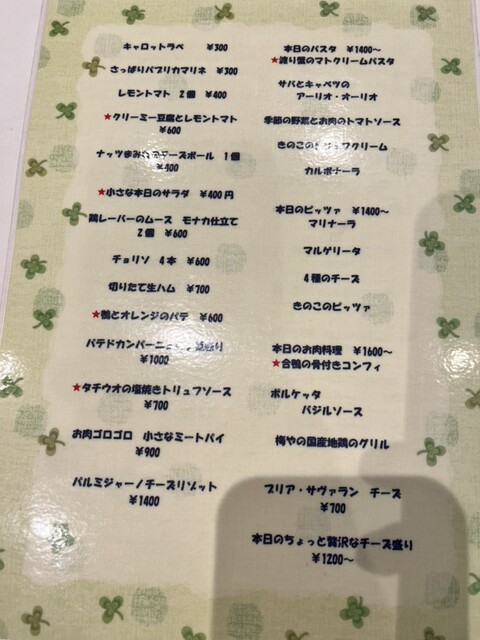 キャロットラペ ¥300
さっぱりパプリカマリネ ¥300
レモントマト 2個 ¥400
★クリーミー豆腐とレモントマト
¥600
ナッツまみれ チーズボール 1個
¥400
★小さな本日のサラダ ¥400円
鶏レーバーのムース モナカ仕立て
2個 ¥600
チョリソ 4本 ¥600
切りたて生ハム ¥700
★鴨とオレンジのパテ ¥600
パテドカンパーニュ 盛り
¥1000
★タチウオの塩焼きトリュフソース
¥700
お肉ゴロゴロ 小さなミートパイ
¥900
パルミジャーノチーズリゾット
¥1400
本日のパスタ ¥1400~
★渡り蟹のマトクリームパスタ
サバとキャベツの
アーリオ・オーリオ
季節の野菜とお肉のトマトソース
きのこのトリュフクリーム
カルボナーラ
本日のピッツァ ¥1400~
マリナーラ
マルゲリータ
4種のチーズ
きのこのピッツァ
本日のお肉料理 ¥1600~
★合鴨の骨付きコンフィ
ポルケッタ
バジルソース
梅やの国産地鶏のグリル
ブリア・サヴァラン チーズ
¥700
本日のちょっと贅沢なチーズ盛り
¥1200~